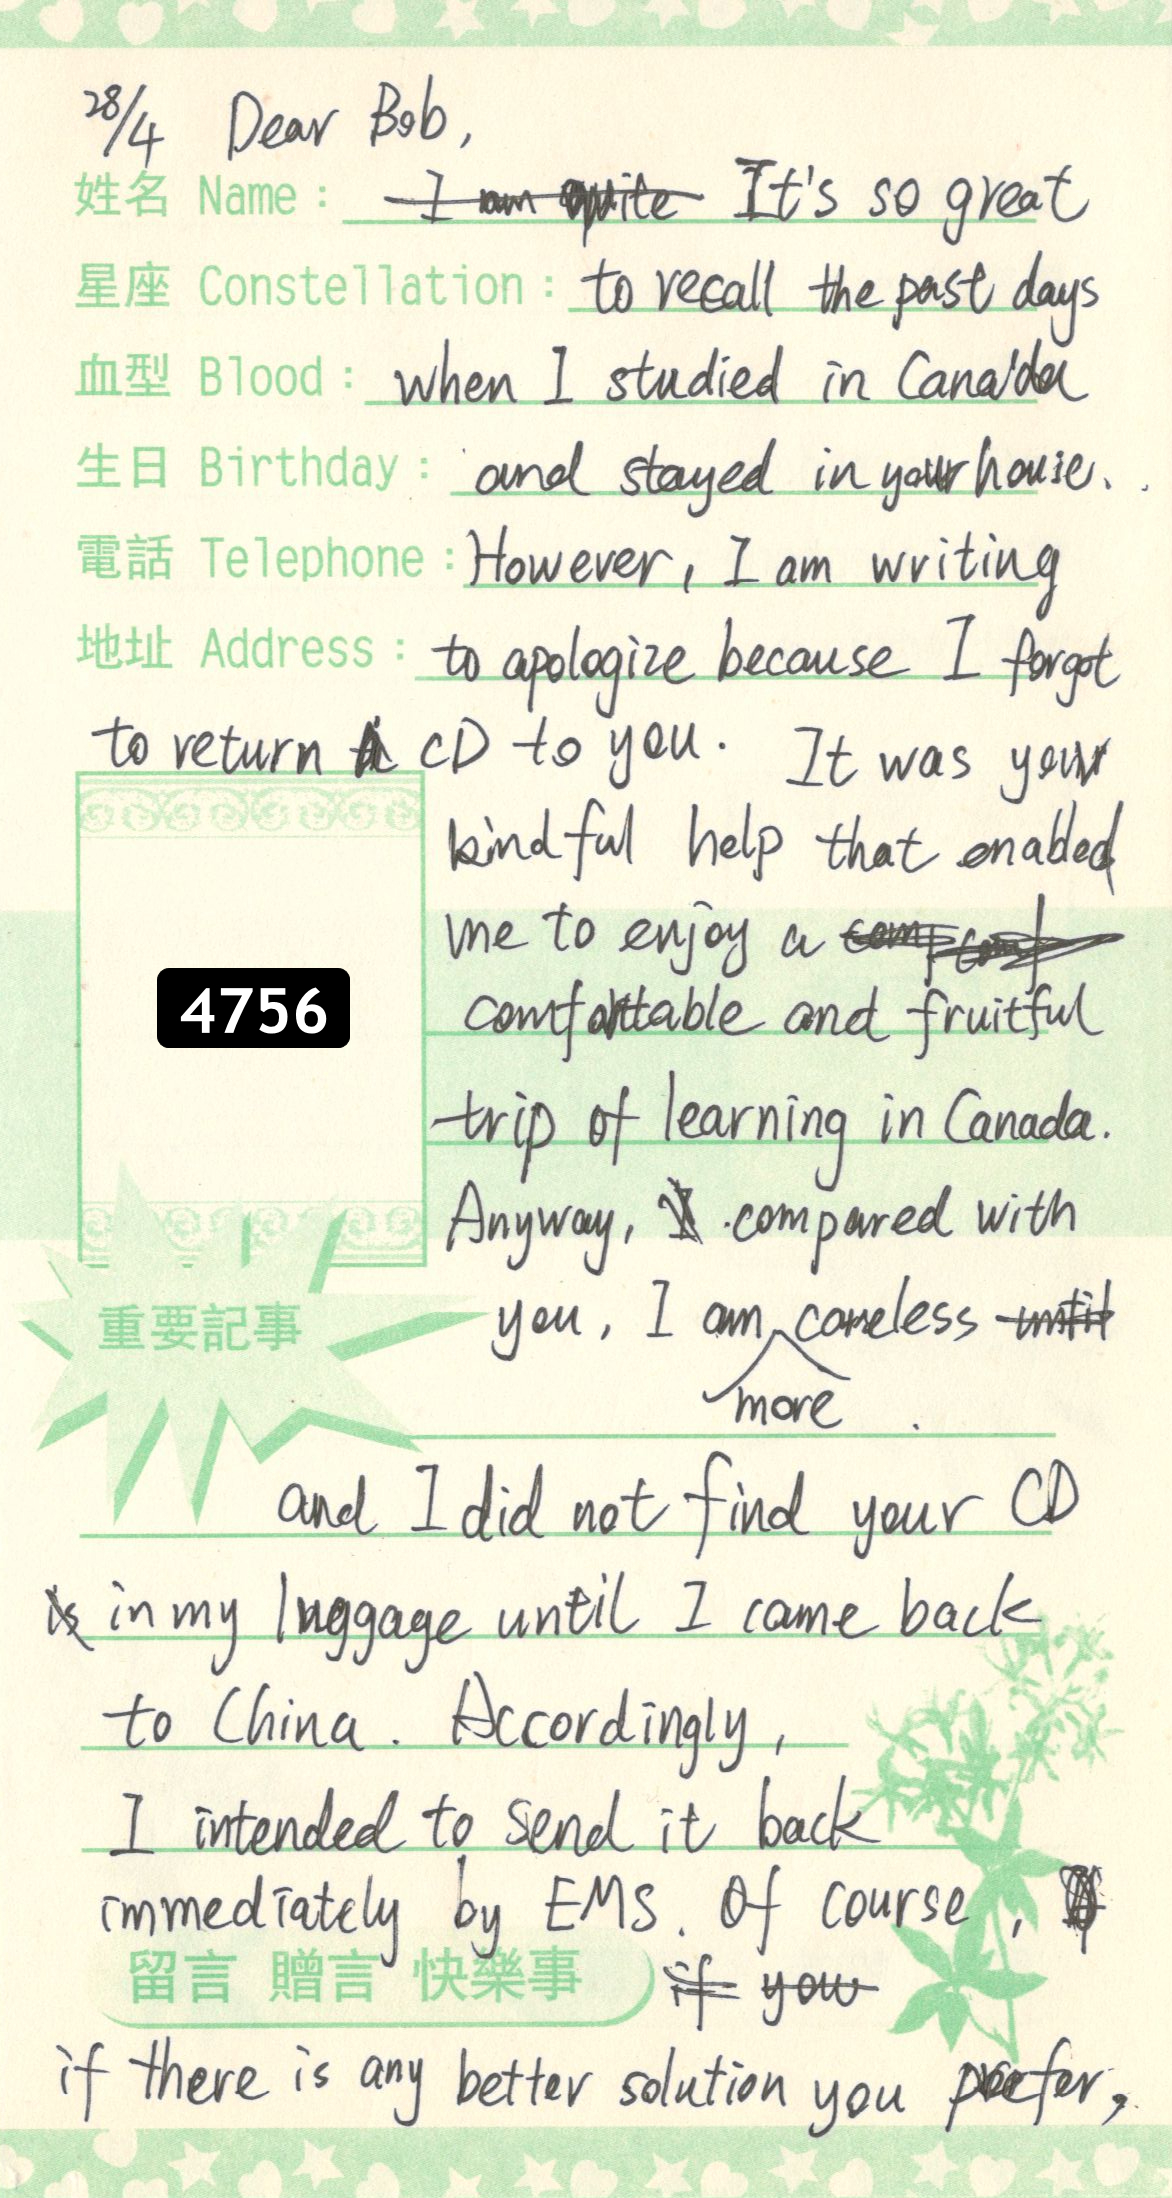 28/4 Dear Bob,
姓名 Name: I am quite It's so great
星座 Constellation: to recall the past days
血型 Blood: when I studied in Canada
生日 Birthday: and stayed in your house.
電話 Telephone: However, I am writing
地址 Address: to apologize because I forgot
to return CD to you. It was your
kindful help that enabled
me to enjoy a
4756
comfortable and fruitful
trip of learning in Canada.
Anyway, compared with
重要記事
you, I am careless until
more
and I did not find your CD
is in my luggage until I came back
to China. Accordingly,
I intended to send it back
immediately by EMS. Of course,
留言 贈言 快樂事
if you
if there is any better solution you prefer,